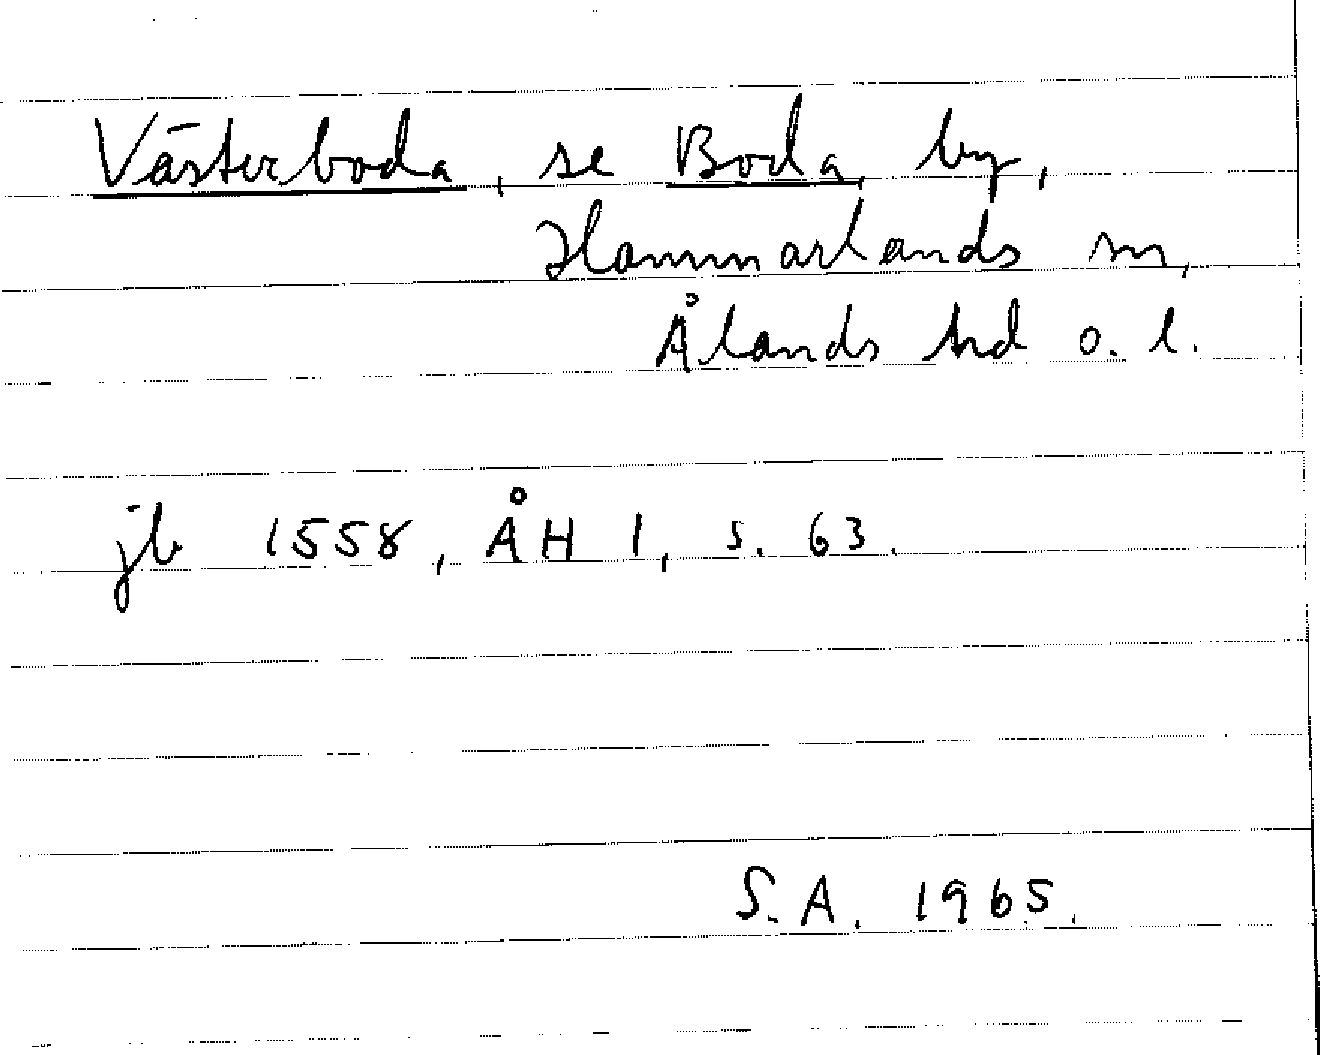 Västerboda, se Boda by,
Hammarlands sn,
Ålands hd o. l.
jb 1558, ÅH 1, s. 63.
S.A. 1965.